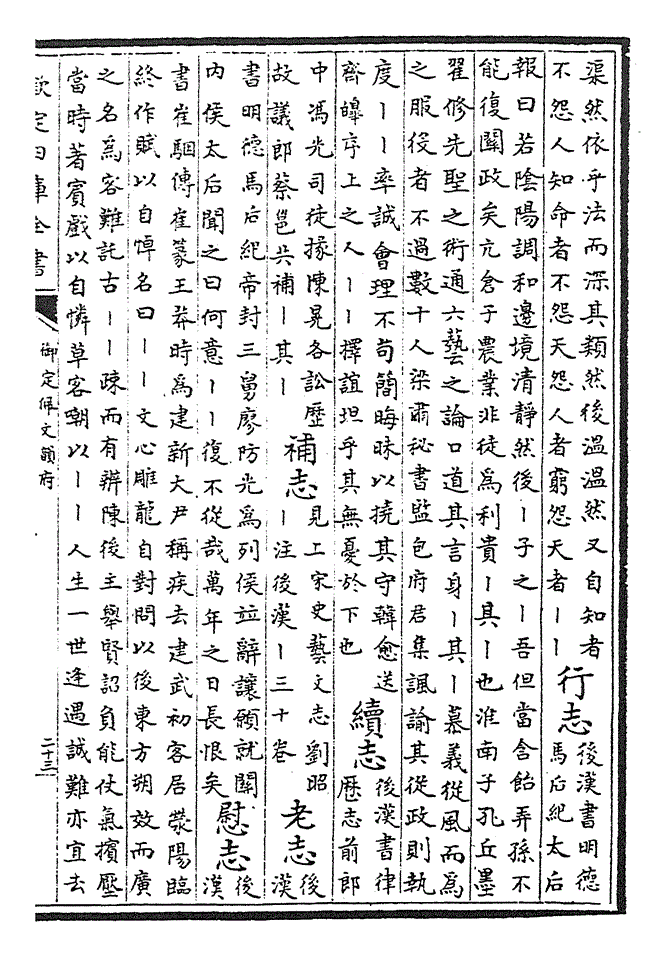 渠然依乎法而深其類然後溫溫然又自知者
不怨人知命者不怨天怨人者窮怨天者丨丨
行志
後漢書明德
馬后紀太后
報曰若陰陽調和邊境清靜然後丨子之丨吾但當含飴弄孫不
能復關政矣亢倉子農業非徒為利貴丨其丨也淮南子孔丘墨
翟修先聖之術通六藝之論口道其言身丨其丨慕義從風而為
之服役者不過數十人梁肅秘書監包府君集諷諭其從政則執
度丨丨率誠會理不茍簡晦昧以撓其守韓愈送
齊皞序上之人丨丨擇誼坦乎其無憂於下也
續志
後漢書律
歷志前郎
中馮光司徒掾陳晃各訟歷
故議郎蔡邕共補丨其丨
補志
見上宋史藝文志劉昭
丨注後漢丨三十卷
老志
後
漢
書明德馬后紀帝封三舅廖防光為列侯竝辭讓願就關
內侯太后聞之曰何意丨丨復不從哉萬年之日長恨矣
慰志
後
漢
書崔駰傳崔篆王莽時為建新大尹稱疾去建武初客居滎陽臨
終作賦以自悼名曰丨丨文心雕龍自對問以後東方朔效而廣
之名為客難託古丨丨疎而有辨陳後主舉賢詔負能仗氣擯壓
當時著賓戲以自憐草客嘲以丨丨人生一世逢遇誠難亦宜去
欽定四庫全書
御定佩文韻府
二十三